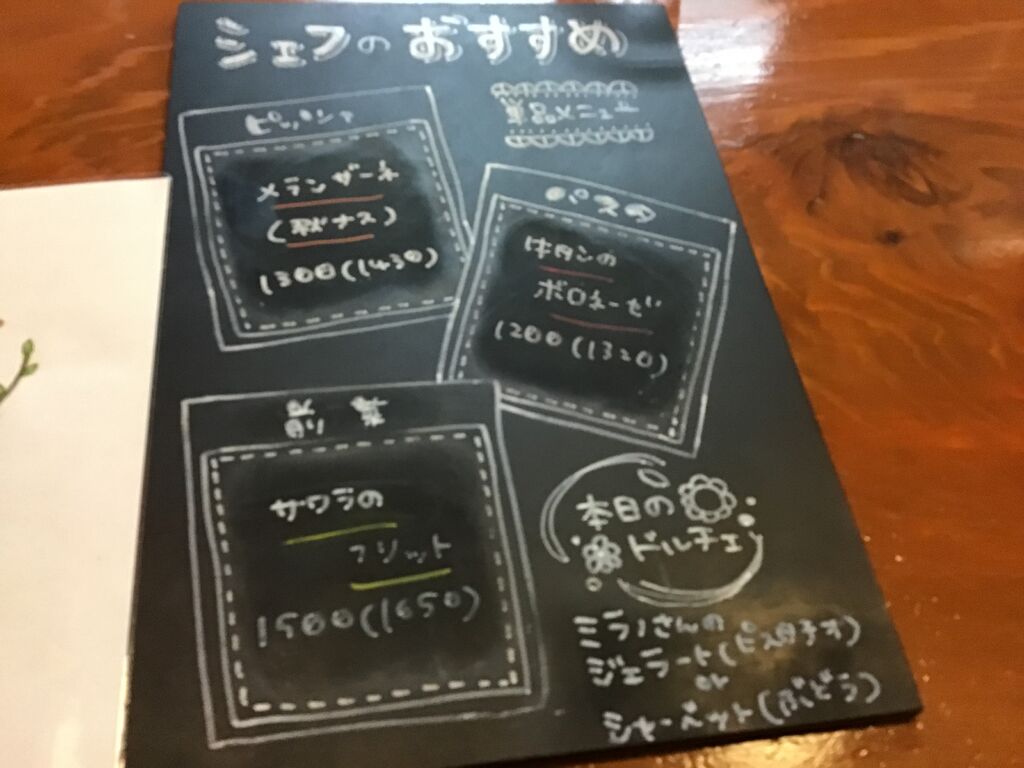 シェフのおすすめ
単品メニュー
ピッツァ
メランザーネ
(秋ナス)
1300(1430)
パスタ
牛タンの
ボロネーゼ
1200(1320)
前菜
サワラの
フリット
1500(1650)
本日の
ドルチェ
ミラノさんの
ジェラート(ピスタチオ)
or
シャーベット(ぶどう)